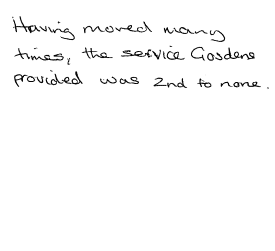 Having moved many
times, the service Gosdens
provided was 2nd to none.